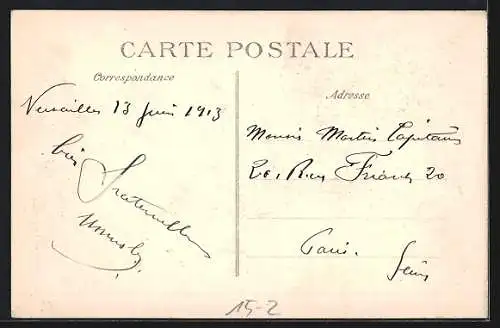 CARTE POSTALE
Correspondance
Adresse
Versailles 13 Juin 1913
bien
fraternelle
Monsr Martin Capitaine
26, Rue 20
Paris.
Seine
15-2